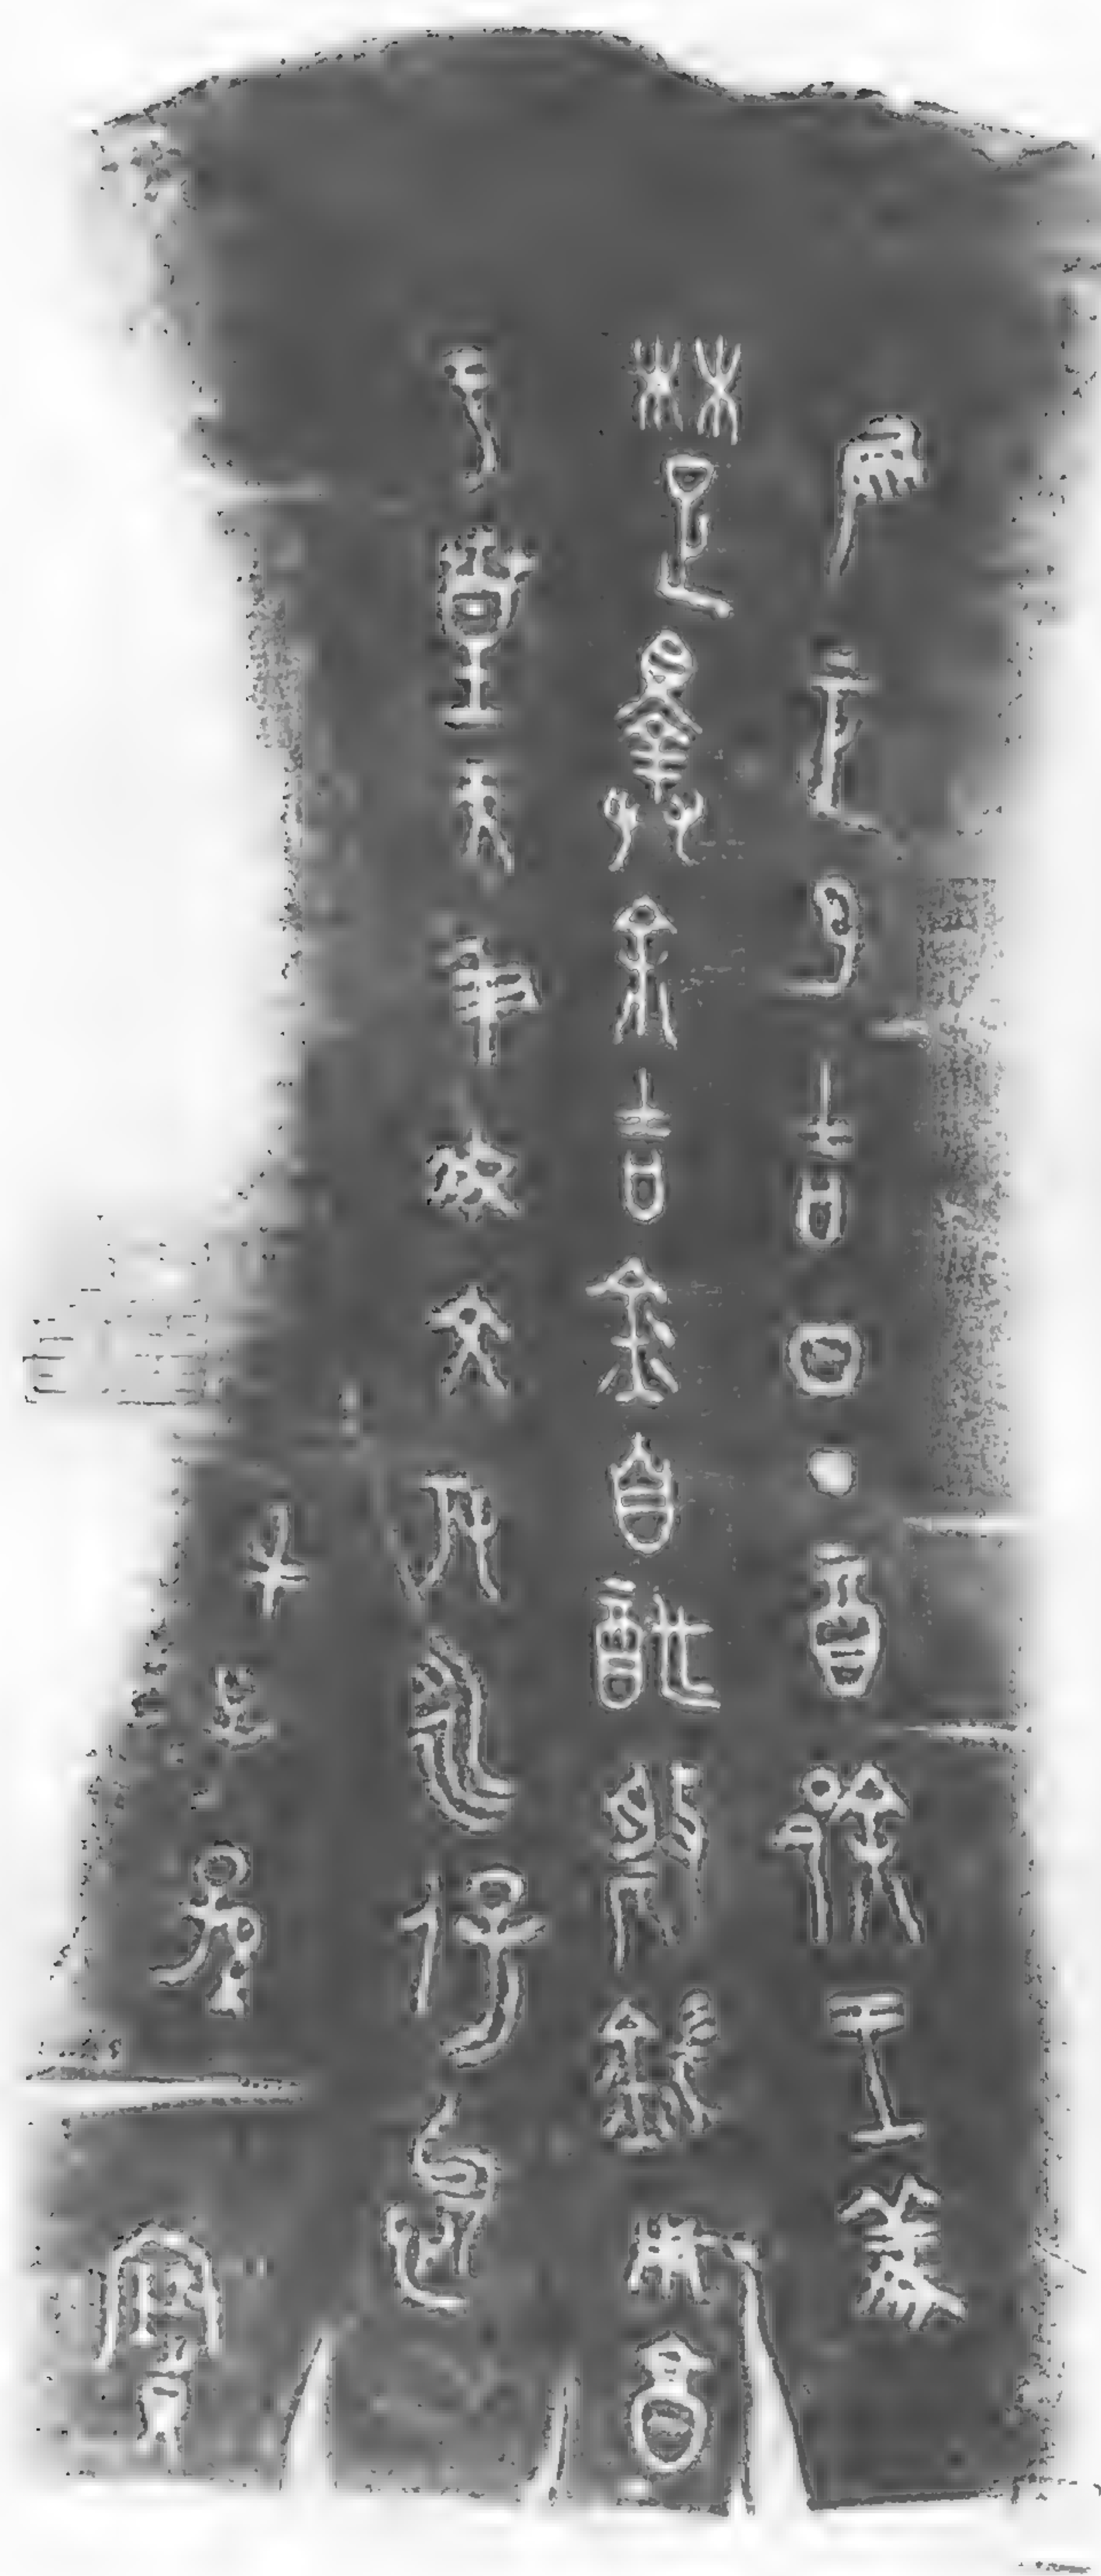 隹正月吉日丁酉䣄王義
楚擇余吉金自酢祭鍴用亯
于皇天及我文考永保
身子孫寶